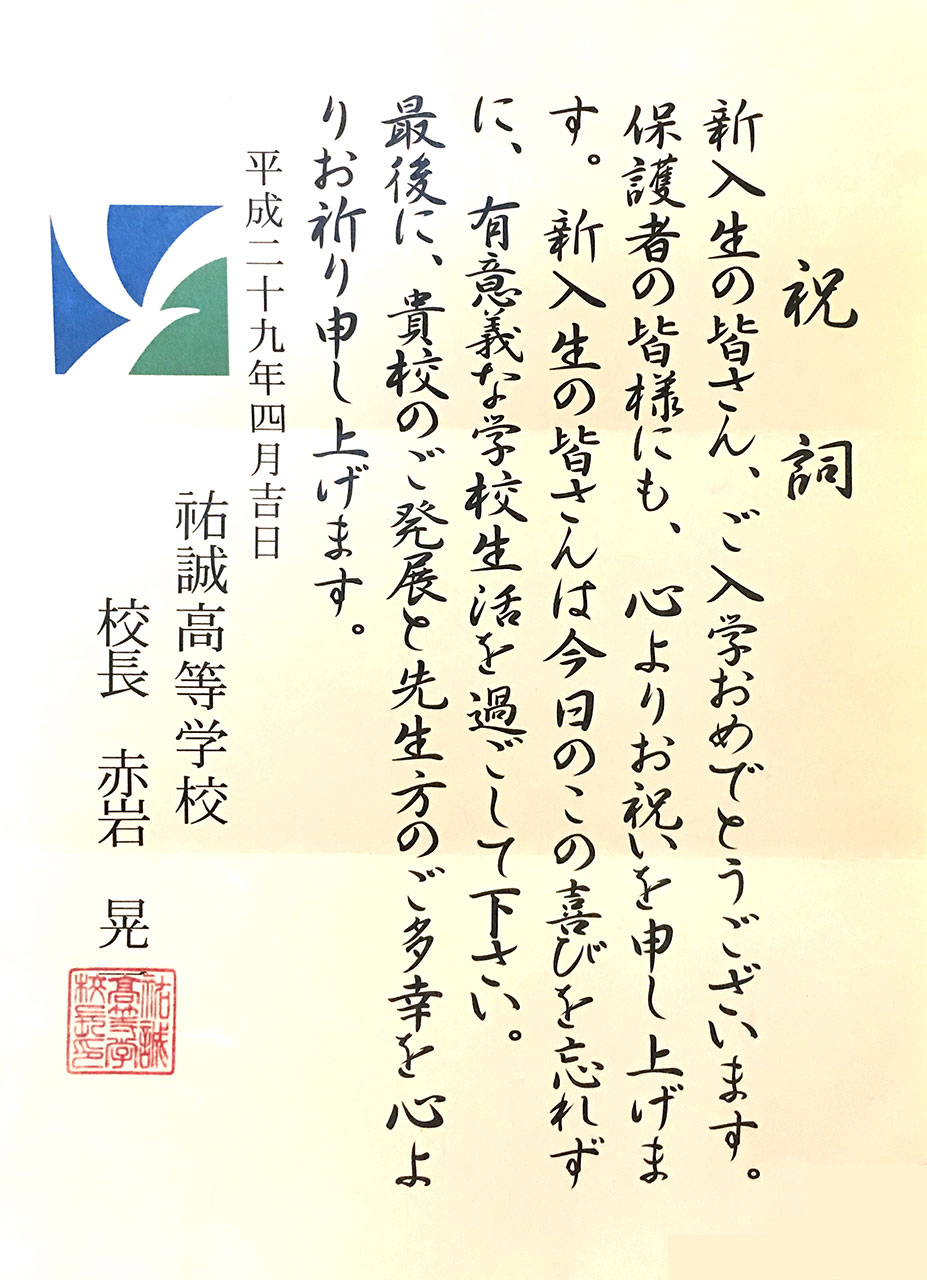 祝詞
新入生の皆さん、ご入学おめでとうございます。
保護者の皆様にも、心よりお祝いを申し上げま
す。新入生の皆さんは今日のこの喜びを忘れず
に、有意義な学校生活を過ごして下さい。
最後に、貴校のご発展と先生方のご多幸を心よ
りお祈り申し上げます。
平成二十九年四月吉日
祐誠高等学校
校長 赤岩 晃
祐誠
高等学
校長印